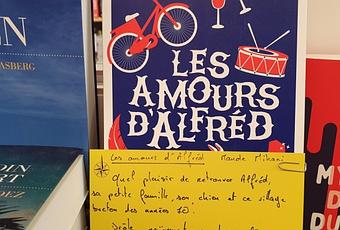 N
ASBERG
LES
AMOURS
D'ALFRÉD
Les amours d'Alfréd Maude Mihami
Quel plaisir de retrouver Alfréd,
sa petite famille, son chien et ce village
breton des années 70.
OIN
RT"
DEZ
MY
D
DU